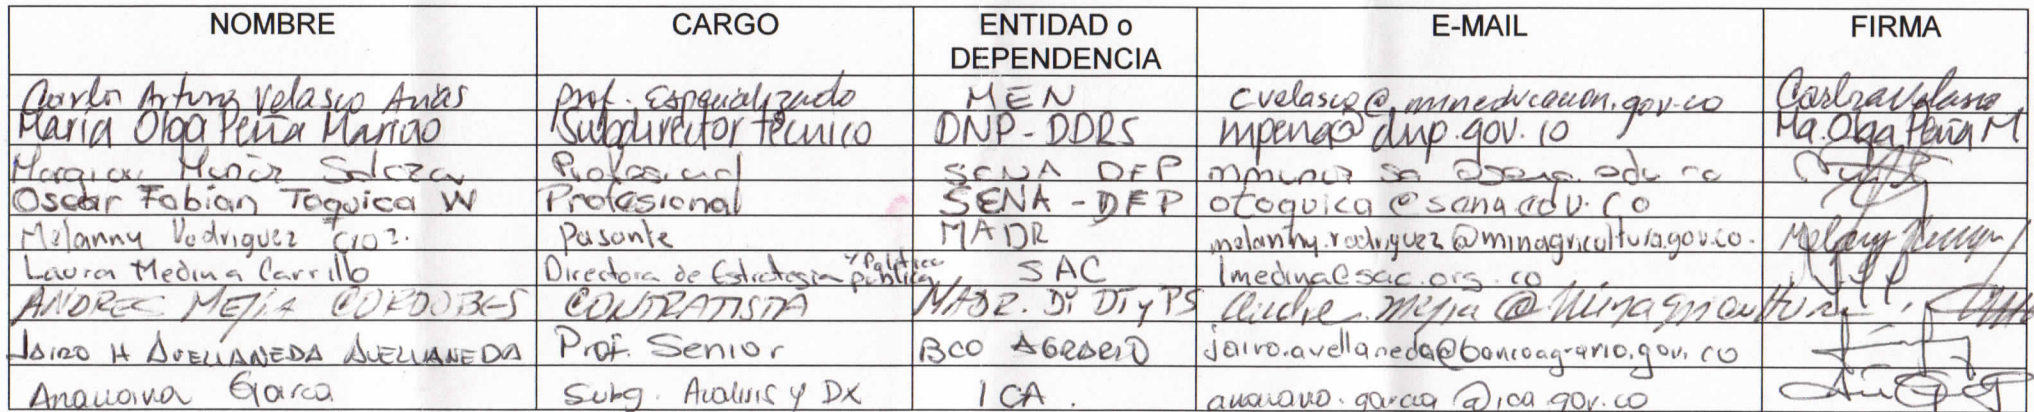 NOMBRE CARGO ENTIDAD o DEPENDENCIA E-MAIL FIRMA
Carlos Arturo Velasco Arias Prof. Especializado MEN cvelasco@mineducacion.gov.co
María Olga Peña Mariño Subdirector técnico DNP-DDRS mpena@dnp.gov.co Ma. Olga Peña M
Muñoz Profesional SENA DFP
Oscar Fabian Toquica W Profesional SENA - DFP otoquica@sena.edu.co
Melanny Rodriguez Pasante MADR melanny.rodriguez@minagricultura.gov.co.
Laura Medina Carrillo Directora de Estrategia y Política pública SAC lmedina@sac.org.co
ANDRES MEJIA CORDOBES CONTRATISTA MADR. DTyPS
JAIRO H AVELLANEDA AVELLANEDA Prof. Senior BCO AGRARIO jairo.avellaneda@bancoagrario.gov.co
Garca Subg. Analisis y DX ICA.